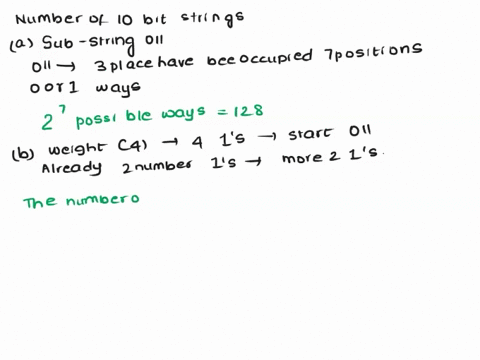 Number of 10 bit strings
(a) Sub-string 011
011 → 3 place have bee occupied 7 positions
0 or 1 ways
2^7 possible ways = 128
(b) weight (4) → 4 1's → start 011
Already 2 number 1's → more 2 1's.
The number o